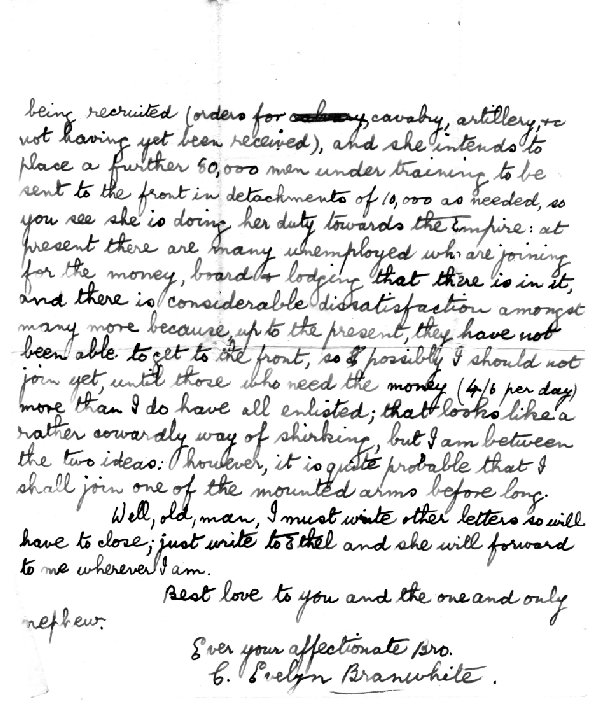 being recruited (orders for cavalry, artillery, &c
not having yet been received), and she intends to
place a further 50,000 men under training to be
sent to the front in detachments of 10,000 as needed, so
you see she is doing her duty towards the Empire: at
present there are many unemployed who are joining
for the money, board & lodging that there is in it,
and there is considerable dissatisfaction amongst
many more because, up to the present, they have not
been able to get to the front, so possibly I should not
join yet, until those who need the money (4/6 per day)
more than I do have all enlisted; that looks like a
rather cowardly way of shirking, but I am between
the two ideas: however, it is quite probable that I
shall join one of the mounted arms before long.
Well, old, man, I must write other letters so will
have to close; just write to Ethel and she will forward
to me wherever I am.
Best love to you and the one and only
nephew.
Ever your affectionate Bro.
C. Evelyn Branwhite.